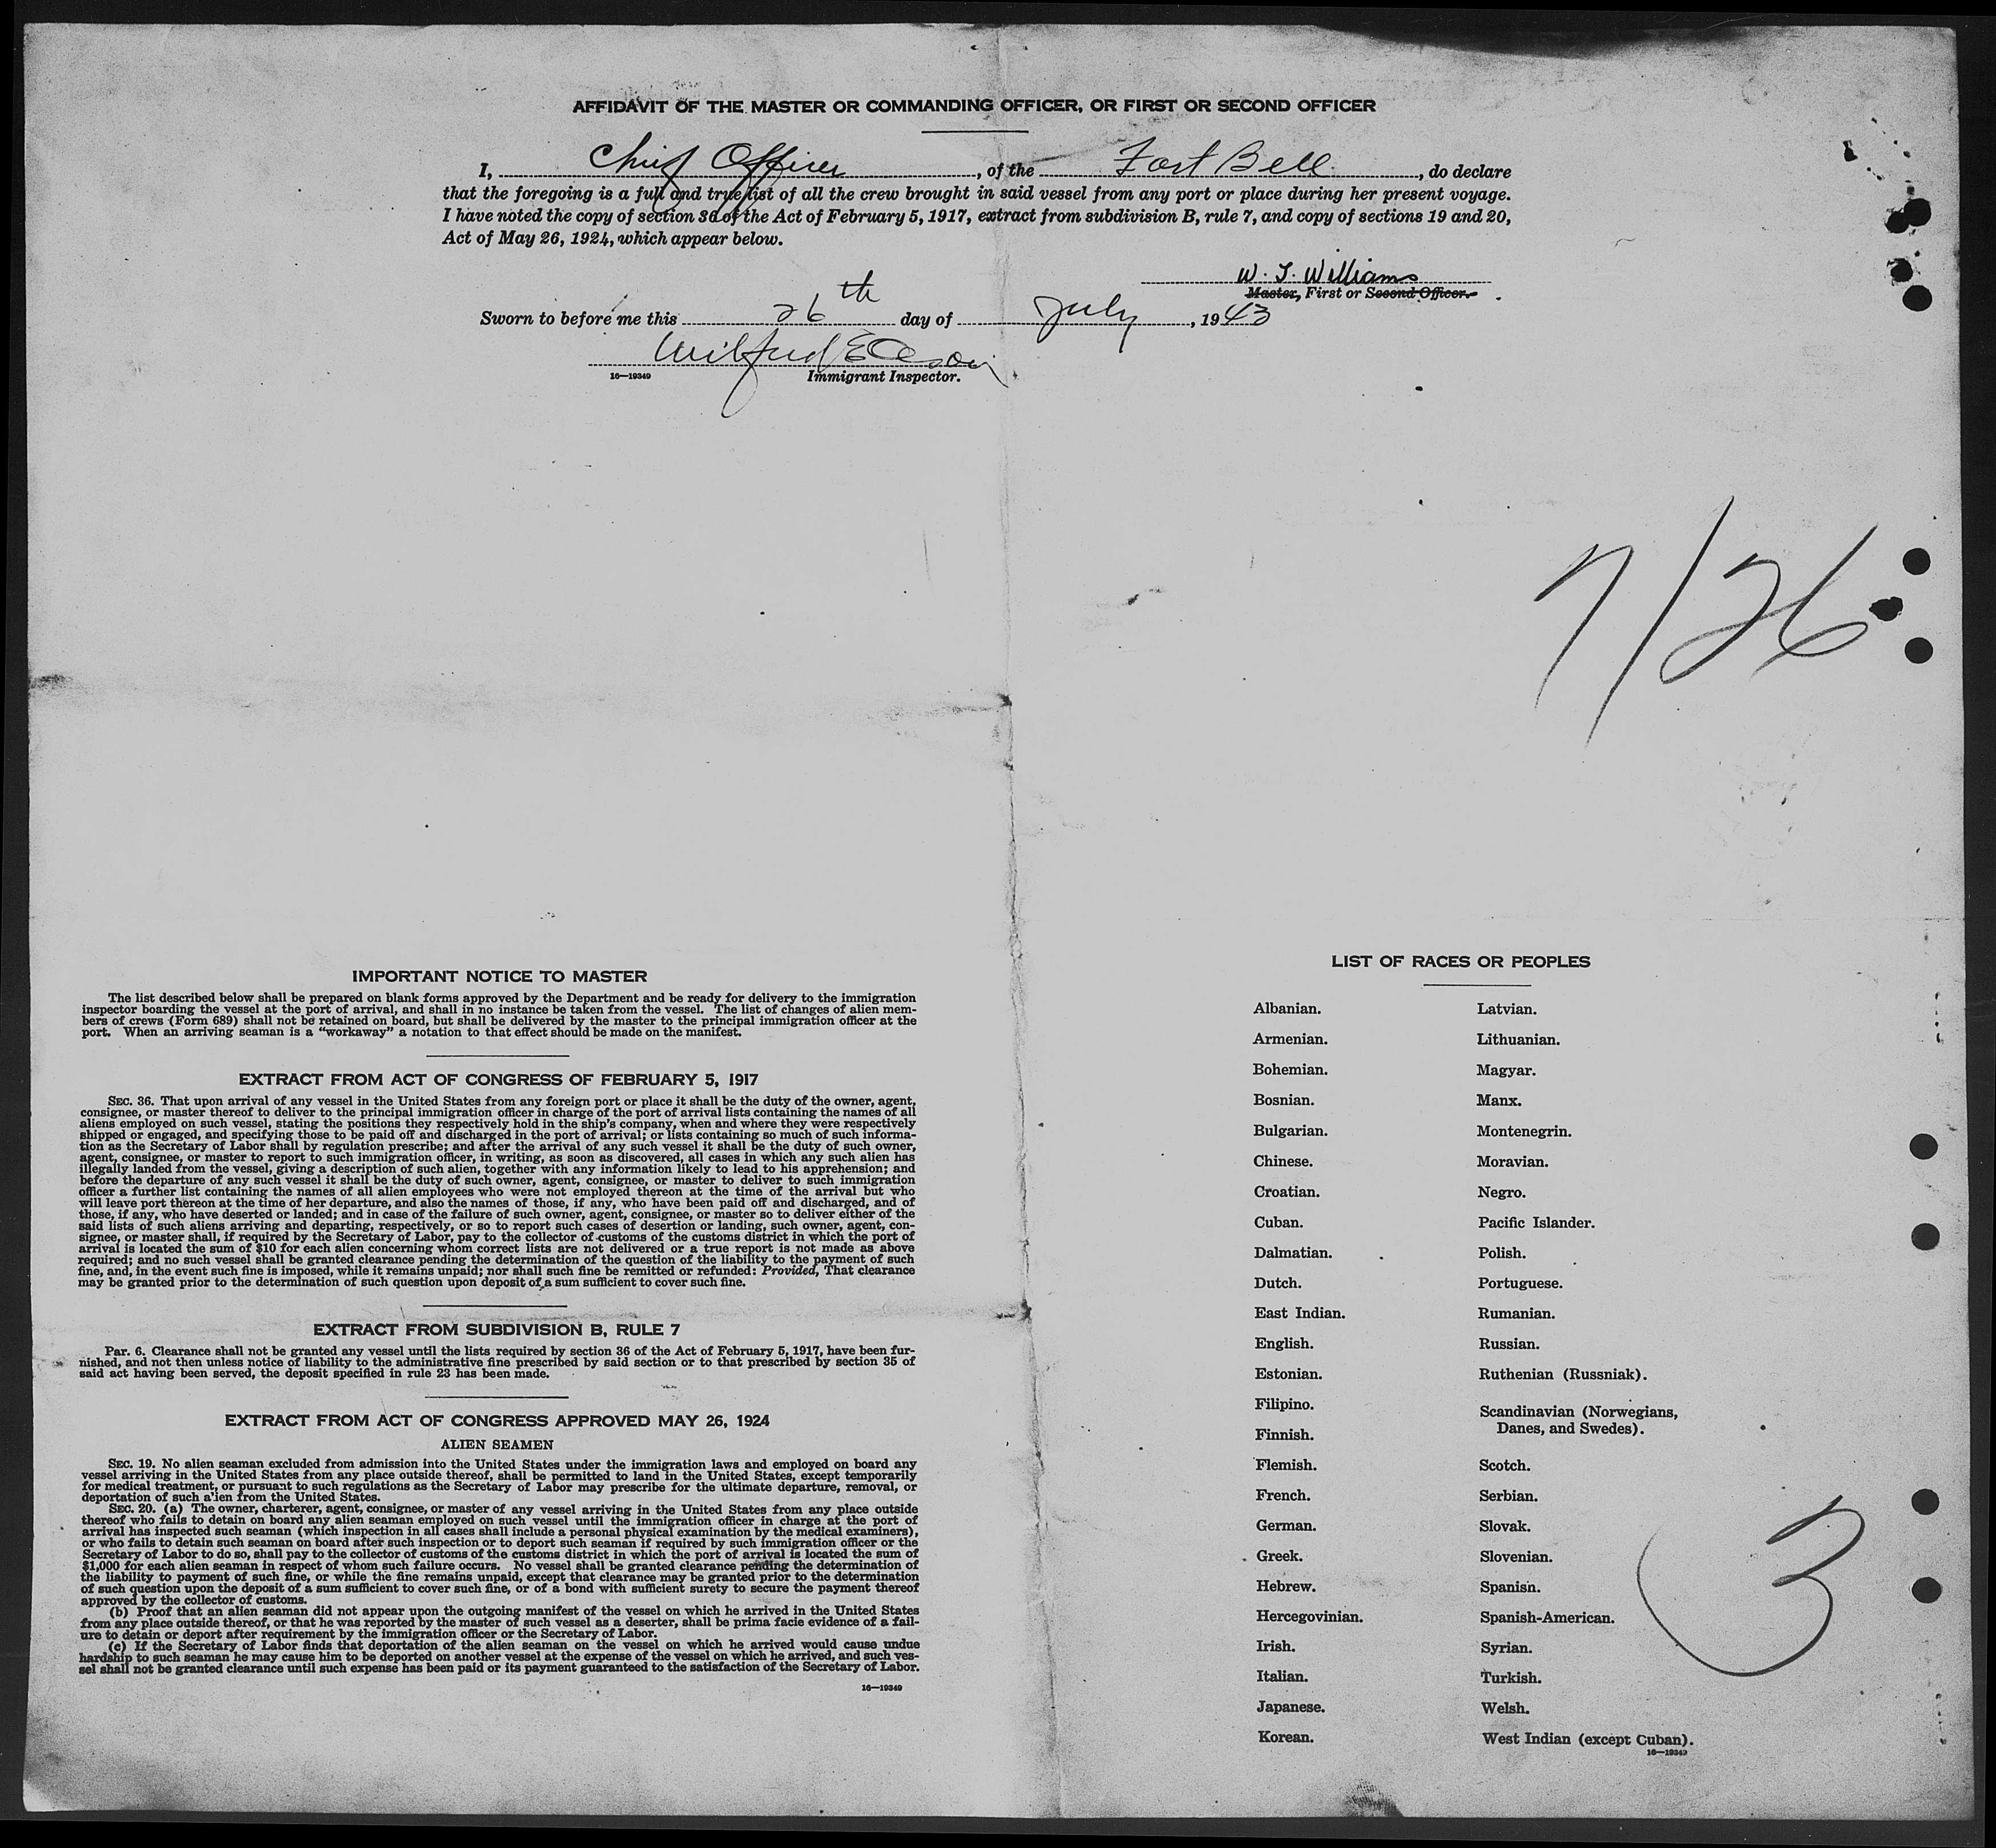 AFFIDAVIT OF THE MASTER OR COMMANDING OFFICER, OR FIRST OR SECOND OFFICER
I, Chief Officer, of the Fort Bell, do declare
that the foregoing is a full and true list of all the crew brought in said vessel from any port or place during her present voyage.
I have noted the copy of section 36 of the Act of February 5, 1917, extract from subdivision B, rule 7, and copy of sections 19 and 20,
Act of May 26, 1924, which appear below.
W. J. Williams
Master, First or Second Officer.
Sworn to before me this 26th day of July, 1943
Wilfred
16—19349 Immigrant Inspector.
7/26
IMPORTANT NOTICE TO MASTER
The list described below shall be prepared on blank forms approved by the Department and be ready for delivery to the immigration
inspector boarding the vessel at the port of arrival, and shall in no instance be taken from the vessel. The list of changes of alien mem-
bers of crews (Form 689) shall not be retained on board, but shall be delivered by the master to the principal immigration officer at the
port. When an arriving seaman is a "workaway" a notation to that effect should be made on the manifest.
EXTRACT FROM ACT OF CONGRESS OF FEBRUARY 5, 1917
SEC. 36. That upon arrival of any vessel in the United States from any foreign port or place it shall be the duty of the owner, agent,
consignee, or master thereof to deliver to the principal immigration officer in charge of the port of arrival lists containing the names of all
aliens employed on such vessel, stating the positions they respectively hold in the ship's company, when and where they were respectively
shipped or engaged, and specifying those to be paid off and discharged in the port of arrival; or lists containing so much of such informa-
tion as the Secretary of Labor shall by regulation prescribe; and after the arrival of any such vessel it shall be the duty of such owner,
agent, consignee, or master to report to such immigration officer, in writing, as soon as discovered, all cases in which any such alien has
illegally landed from the vessel, giving a description of such alien, together with any information likely to lead to his apprehension; and
before the departure of any such vessel it shall be the duty of such owner, agent, consignee, or master to deliver to such immigration
officer a further list containing the names of all alien employees who were not employed thereon at the time of the arrival but who
will leave port thereon at the time of her departure, and also the names of those, if any, who have been paid off and discharged, and of
those, if any, who have deserted or landed; and in case of the failure of such owner, agent, consignee, or master so to deliver either of the
said lists of such aliens arriving and departing, respectively, or so to report such cases of desertion or landing, such owner, agent, con-
signee, or master shall, if required by the Secretary of Labor, pay to the collector of customs of the customs district in which the port of
arrival is located the sum of $10 for each alien concerning whom correct lists are not delivered or a true report is not made as above
required; and no such vessel shall be granted clearance pending the determination of the question of the liability to the payment of such
fine, and, in the event such fine is imposed, while it remains unpaid; nor shall such fine be remitted or refunded: Provided, That clearance
may be granted prior to the determination of such question upon deposit of a sum sufficient to cover such fine.
EXTRACT FROM SUBDIVISION B, RULE 7
Par. 6. Clearance shall not be granted any vessel until the lists required by section 36 of the Act of February 5, 1917, have been fur-
nished, and not then unless notice of liability to the administrative fine prescribed by said section or to that prescribed by section 35 of
said act having been served, the deposit specified in rule 23 has been made.
EXTRACT FROM ACT OF CONGRESS APPROVED MAY 26, 1924
ALIEN SEAMEN
SEC. 19. No alien seaman excluded from admission into the United States under the immigration laws and employed on board any
vessel arriving in the United States from any place outside thereof, shall be permitted to land in the United States, except temporarily
for medical treatment, or pursuant to such regulations as the Secretary of Labor may prescribe for the ultimate departure, removal, or
deportation of such alien from the United States.
SEC. 20. (a) The owner, charterer, agent, consignee, or master of any vessel arriving in the United States from any place outside
thereof who fails to detain on board any alien seaman employed on such vessel until the immigration officer in charge at the port of
arrival has inspected such seaman (which inspection in all cases shall include a personal physical examination by the medical examiners),
or who fails to detain such seaman on board after such inspection or to deport such seaman if required by such immigration officer or the
Secretary of Labor to do so, shall pay to the collector of customs of the customs district in which the port of arrival is located the sum of
$1,000 for each alien seaman in respect of whom such failure occurs. No vessel shall be granted clearance pending the determination of
the liability to payment of such fine, or while the fine remains unpaid, except that clearance may be granted prior to the determination
of such question upon the deposit of a sum sufficient to cover such fine, or of a bond with sufficient surety to secure the payment thereof
approved by the collector of customs.
(b) Proof that an alien seaman did not appear upon the outgoing manifest of the vessel on which he arrived in the United States
from any place outside thereof, or that he was reported by the master of such vessel as a deserter, shall be prima facie evidence of a fail-
ure to detain or deport after requirement by the immigration officer or the Secretary of Labor.
(c) If the Secretary of Labor finds that deportation of the alien seaman on the vessel on which he arrived would cause undue
hardship to such seaman he may cause him to be deported on another vessel at the expense of the vessel on which he arrived, and such ves-
sel shall not be granted clearance until such expense has been paid or its payment guaranteed to the satisfaction of the Secretary of Labor.
16—19349
LIST OF RACES OR PEOPLES
Albanian.
Armenian.
Bohemian.
Bosnian.
Bulgarian.
Chinese.
Croatian.
Cuban.
Dalmatian.
Dutch.
East Indian.
English.
Estonian.
Filipino.
Finnish.
Flemish.
French.
German.
Greek.
Hebrew.
Hercegovinian.
Irish.
Italian.
Japanese.
Korean.
Latvian.
Lithuanian.
Magyar.
Manx.
Montenegrin.
Moravian.
Negro.
Pacific Islander.
Polish.
Portuguese.
Rumanian.
Russian.
Ruthenian (Russniak).
Scandinavian (Norwegians,
Danes, and Swedes).
Scotch.
Serbian.
Slovak.
Slovenian.
Spanish.
Spanish-American.
Syrian.
Turkish.
Welsh.
West Indian (except Cuban).
16—19349
3